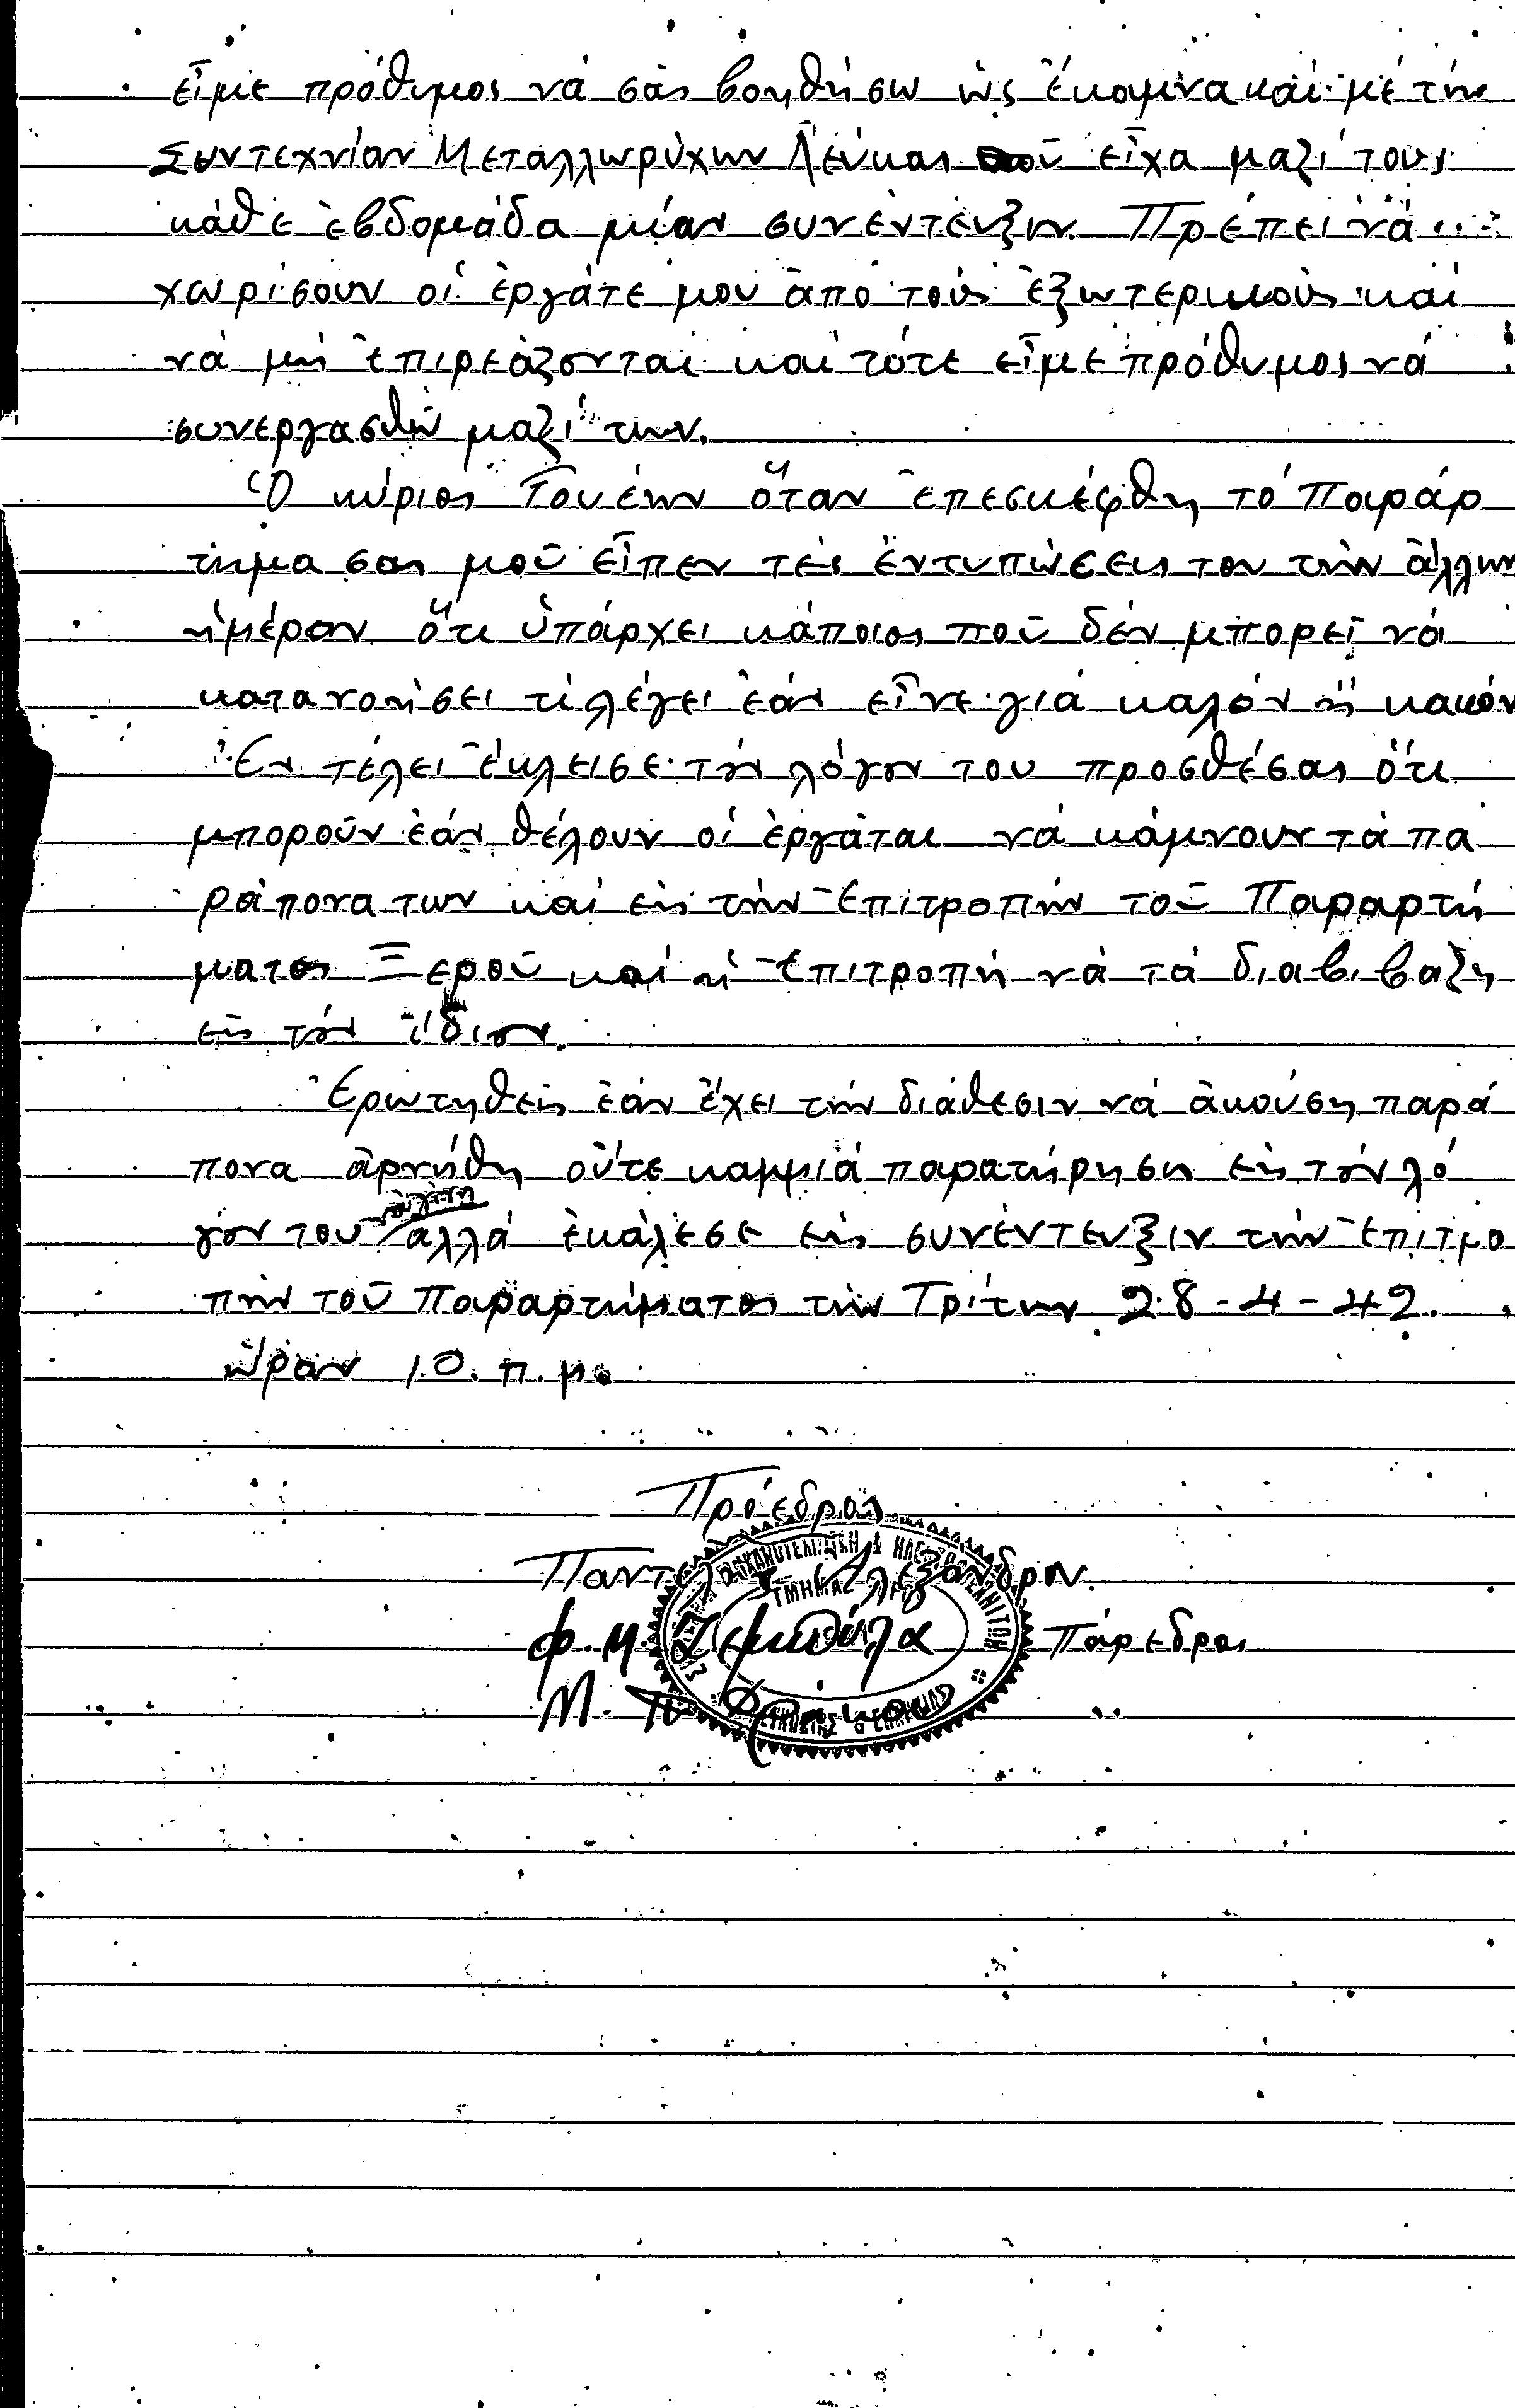 εἶμε πρόθυμος νά σᾶς βοηθήσω ὡς ἔκαμνα καί μέ τήν
Συντεχνίαν Μεταλλωρύχων Λεύκας ποῦ εἶχα μαζί τους
κάθε ἑβδομάδα μίαν συνέντευξιν. Πρέπει νά
χωρίσουν οἱ ἐργάτε μου ἀπό τούς ἐξωτερικούς καί
νά μή ἐπιρεάζονται καί τότε εἶμε πρόθυμος νά
συνεργασθῶ μαζί των.
Ὁ κύριος Γουέην ὅταν ἐπεσκέφθη τό Παράρ
τημα σας μοῦ εἶπεν τές ἐντυπώσεις του τήν ἄλλην
ἡμέραν ὅτι ὑπάρχει κάποιος ποῦ δέν μπορεῖ νά
κατανοήσει τί λέγει ἐάν εἶνε γιά καλόν ἤ κακόν
Ἐν τέλει ἔκλεισε τόν λόγον του προσθέσας ὅτι
μποροῦν ἐάν θέλουν οἱ ἐργάται νά κάμνουν τά πα
ράπονα των καί εἰς τήν Ἐπιτροπήν τοῦ Παραρτή
ματος Ξεροῦ καί ἡ Ἐπιτροπή νά τά διαβιβάζη
εἰς τόν ἴδιον.
Ἐρωτηθείς ἐάν ἔχει τήν διάθεσιν νά ἀκούση παρά
πονα ἀρνήθη οὔτε καμμιά παρατήρησις εἰς τόν λό
γον του νά γίνη ἀλλά ἐκάλεσε εἰς συνέντευξιν τήν Ἐπιτρο
πήν τοῦ Παραρτήματος τήν Τρίτην 28-4-42.
ὥραν 10. π.μ.
Πρόεδρος
Παντελῆς Ἀλεξάνδρου
Φ. Μ. Πάρεδρος
Μ. Π. ..
ΤΜΗΜΑ